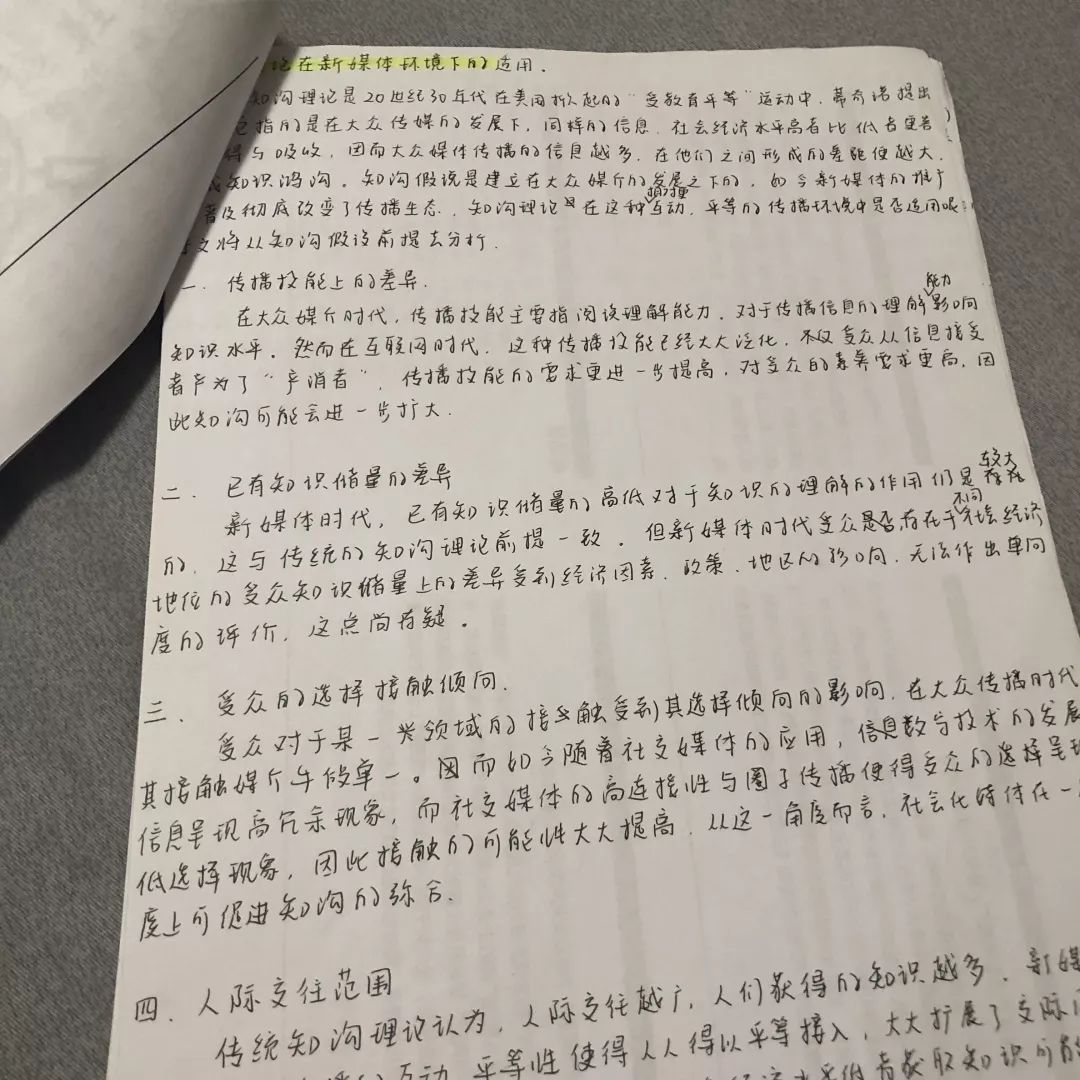 论在新媒体环境下的适用.
知沟理论是20世纪30年代在美国掀起的“受教育平等”运动中.蒂奇诺提出
它指的是在大众传媒的发展下,同样的信息.社会经济水平高者比低者更善
得与吸收,因而大众媒体传播的信息越多,在他们之间形成的差距便越大.
成知识鸿沟。知沟假说是建立在大众媒介的发展之下的,如今新媒体的推广
普及彻底改变了传播生态,知沟理论是在这种互动、平等的传播环境中是否适用呢
本文将从知沟假设前提去分析.
一.传播技能上的差异.
在大众媒介时代,传播技能主要指阅读理解能力.对于传播信息的理解能力影响
知识水平。然而在互联网时代,这种传播技能已经大大泛化.不仅受众从信息接受
者产为了“产消者”,传播技能的需求更进一步提高,对受众的素养需求更高,因
此知沟可能会进一步扩大.
二.已有知识储量的差异
新媒体时代,已有知识储量的高低对于知识的理解的作用仍是较大
的.这与传统的知沟理论前提一致.但新媒体时代受众是否存在于不同经济
地位的受众知识储量上的差异受到经济因素、政策、地区的影响,无法作出单向
度的评价,这点尚存疑。
三.受众的选择接触倾向.
受众对于某一类领域的接触受到其选择倾向的影响.在大众传播时代
其接触媒介单一。因而如今随着社交媒体的应用,信息数字技术的发展
信息呈现高冗余现象,而社交媒体的高连接性与圈子传播使得受众的选择呈现
低选择现象,因此接触的可能性大大提高.从这一角度而言,社会化媒体在一
度上可促进知沟的弥合.
四.人际交往范围
传统知沟理论认为,人际交往越广,人们获得的知识越多.新媒
互动、平等性使得人人得以平等接入,大大扩展了交际
经济水平低者获取知识可能